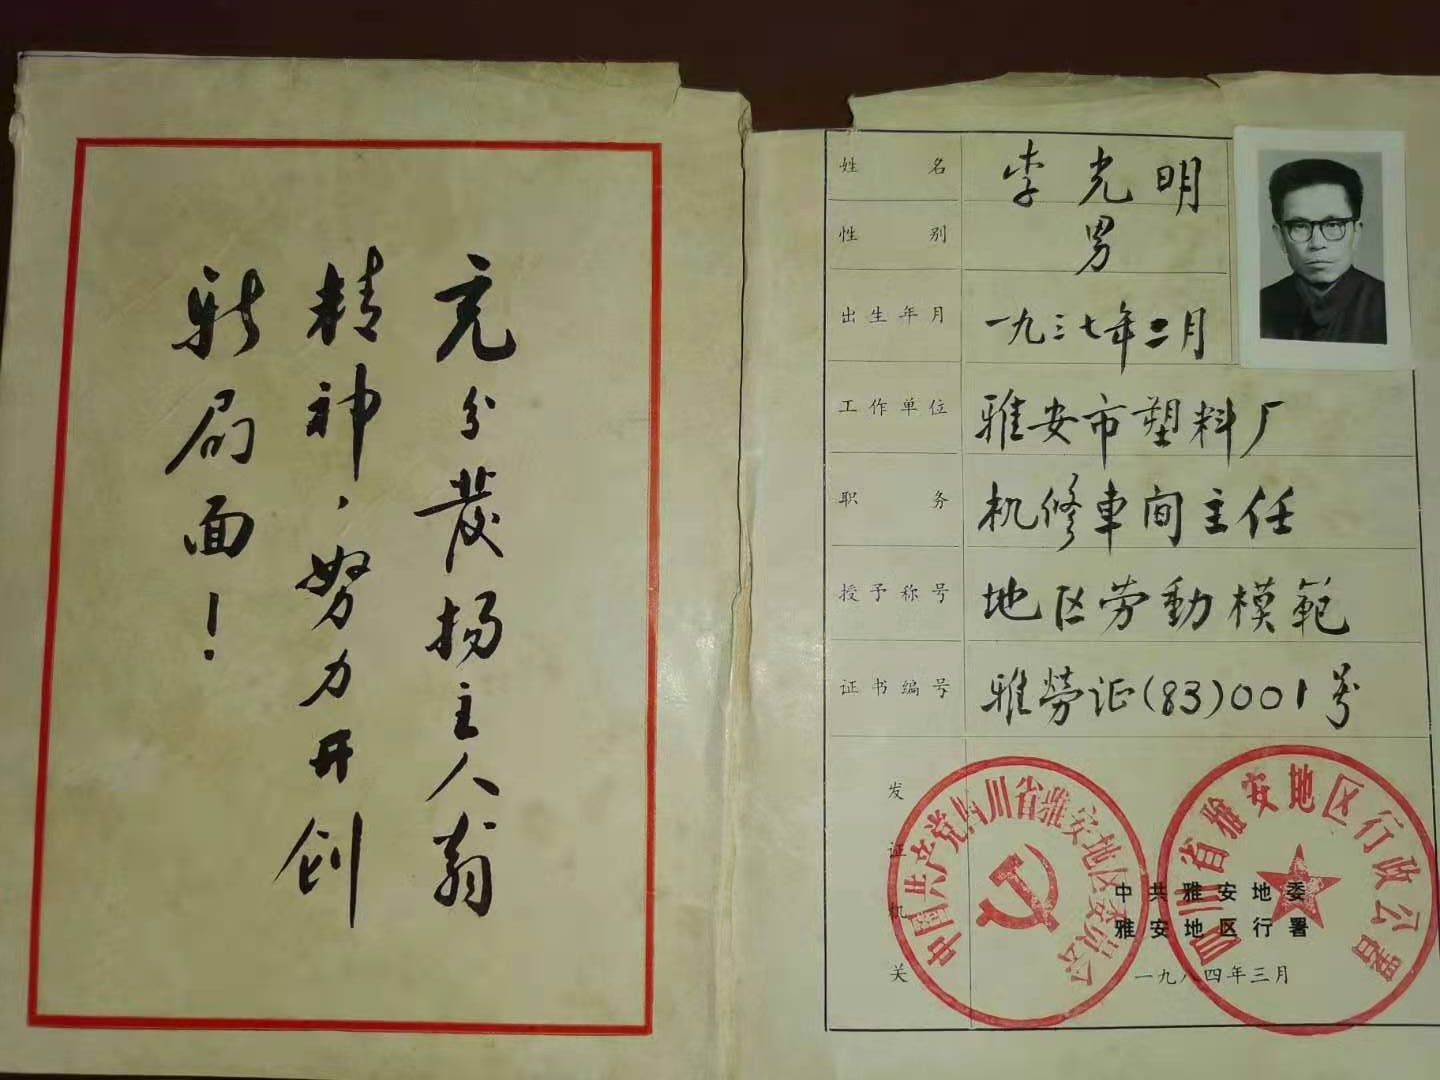 充分發扬主人翁
精神，努力开创
新局面！
姓名 李光明
性别 男
出生年月 一九三七年二月
工作单位 雅安市塑料厂
职务 机修車间主任
授予称号 地区劳動模範
证书编号 雅勞证(83)001号
发证机关
中国共产党四川省雅安地区委员会
四川省雅安地区行政公署
中共雅安地委
雅安地区行署
一九八四年三月